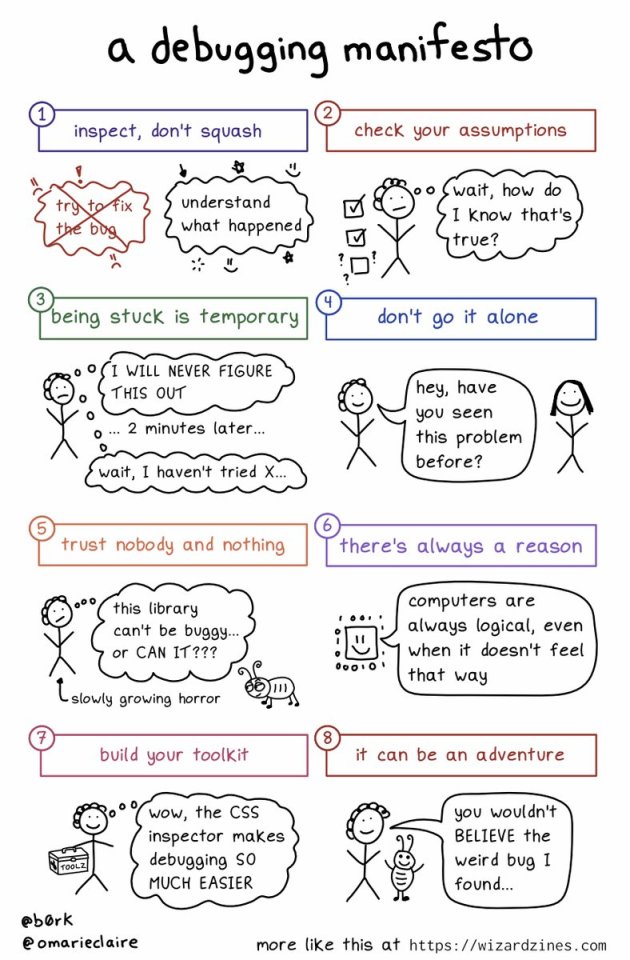 a debugging manifesto
1
inspect, don't squash
try to fix
the bug
understand
what happened
2
check your assumptions
wait, how do
I know that's
true?
? ?
?
3
being stuck is temporary
I WILL NEVER FIGURE
THIS OUT
... 2 minutes later...
wait, I haven't tried X...
4
don't go it alone
hey, have
you seen
this problem
before?
5
trust nobody and nothing
this library
can't be buggy...
or CAN IT???
slowly growing horror
6
there's always a reason
computers are
always logical, even
when it doesn't feel
that way
7
build your toolkit
wow, the CSS
inspector makes
debugging SO
MUCH EASIER
TOOLZ
8
it can be an adventure
you wouldn't
BELIEVE the
weird bug I
found...
@b0rk
@omarieclaire
more like this at https://wizardzines.com